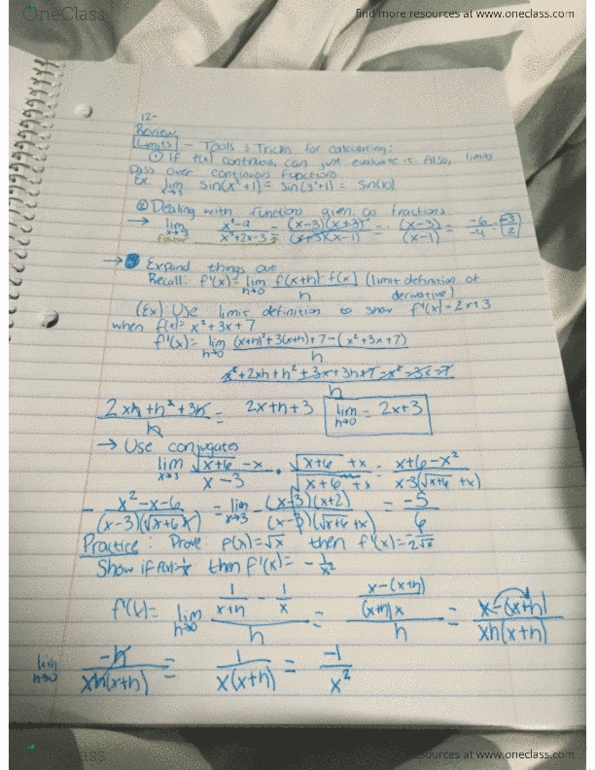 OneClass
find more resources at www.oneclass.com
12-
Review
Limits - Tools & Tricks for calculating:
① If f(x) continuous, can just evaluate it. Also, limits
pass over continuous functions
Ex. lim x→3 sin(x²+1) = sin(3²+1) = sin(10)
② Dealing with functions given as fractions
→ lim x→-3 x²-9 / x²+2x-3 = (x-3)(x+3) / (x+3)(x-1) = (x-3) / (x-1) = -6 / -4 = 3 / 2
Factor
→ Expand things out
Recall: f'(x) = lim h→0 f(x+h) - f(x) / h (limit definition of
derivative)
(Ex) Use limit definition to show f'(x) = 2x+3
when f(x) = x²+3x+7
f'(x) = lim h→0 (x+h)²+3(x+h)+7-(x²+3x+7) / h
x²+2xh+h²+3x+3h+7-x²-3x-7 / h
2xh+h²+3h / h = 2x+h+3 lim h→0 = 2x+3
→ Use conjugates
lim x→3 √x+6 -x / x-3 • √x+6 +x / √x+6 +x = x+6-x² / x-3(√x+6 +x)
- x²-x-6 / (x-3)(√x+6 x) = lim x→3 -(x-3)(x+2) / (x-3)(√x+6 +x) = -5 / 6
Practice: Prove f(x)=√x then f'(x)= 2√x
Show if f(x)=1/x then f'(x) = -1/x²
f'(x) = lim h→0 1/x+h - 1/x / h = x-(x+h) / (x+h)x / h = x-(x+h) / xh(x+h)
lim h→0 -h / xh(x+h) = 1 / x(x+h) = -1 / x²
OneClass
find more resources at www.oneclass.com